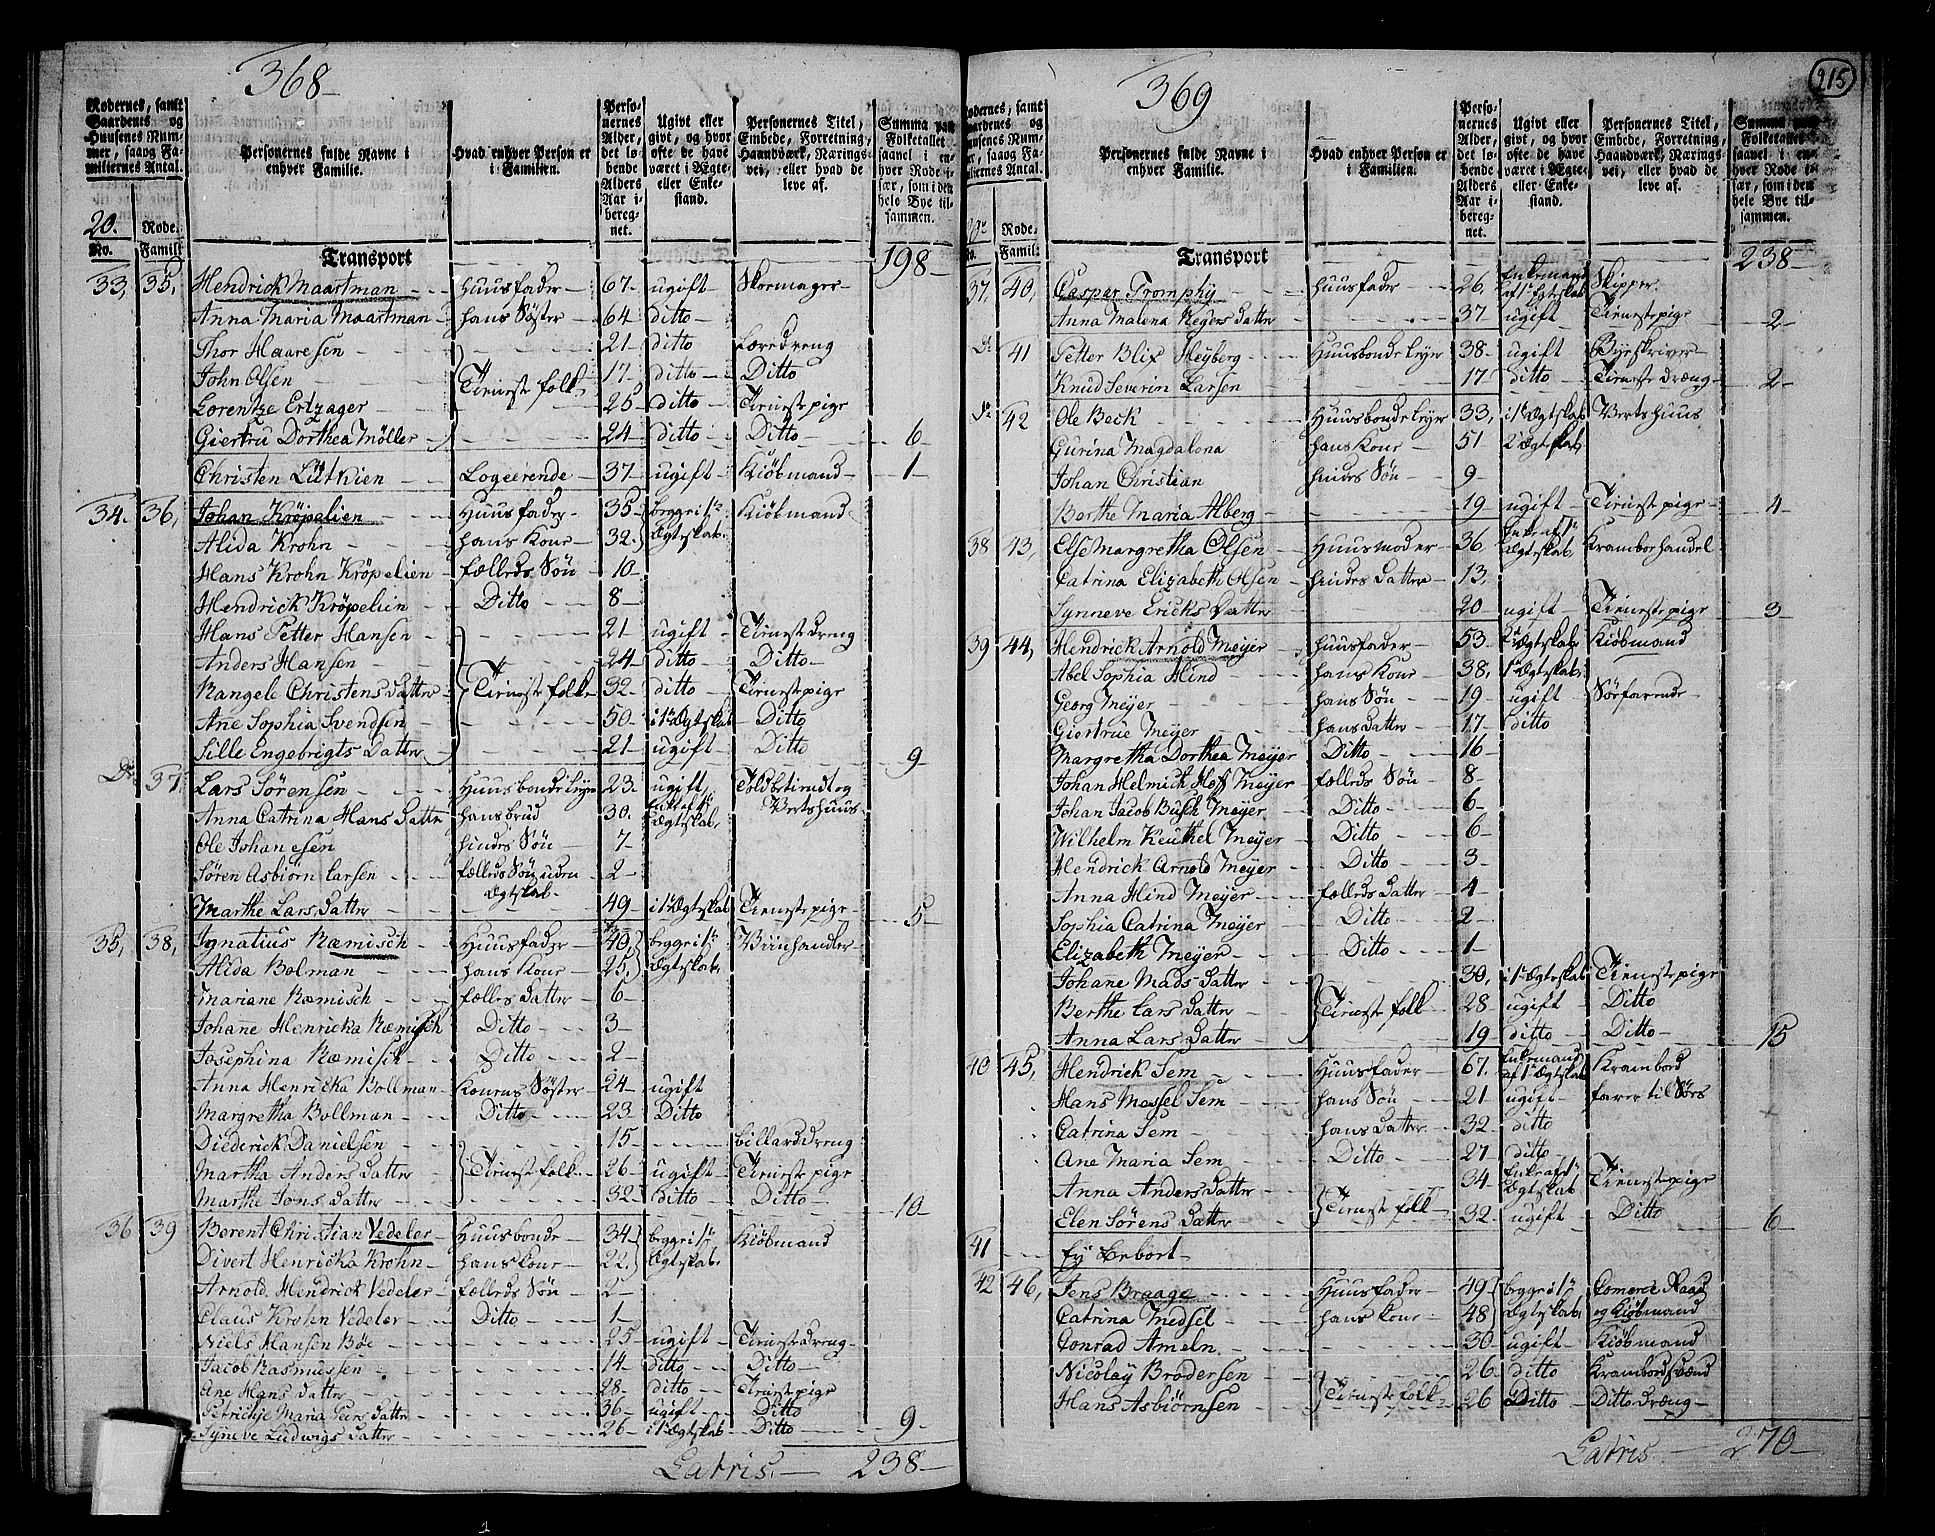 368
Rodernes, samt Gaardenes og Huusenes Nummer, saaog Familiernes Antal.
Personernes fulde Navne i enhver Familie.
Hvad enhver Person er i Familien.
Personernes Alder, det løbende Alders Aar iberegnet.
Ugivt eller givt, og hvor ofte de have været i Ægte- eller Enkestand.
Personernes Titel, Embede, Forretning, Haandværk, Næringsvei, eller hvad de leve af.
Summa paa Folketallet saavel i enhver Rode især, som i den hele Bye tilsammen.
20. Rode.
No. Famili
Transport 198
33, 35, Hendrick Maartman Huusfader 67 ugift Skomager
Anna Maria Maartman hans Søster 64 ditto
Thor Haaresen 21 ditto Læredreng
John Olsen Tieneste folk 17 ditto Ditto
Lorentze Ertzager 25 ditto Tienestepige
Giertru Dorthea Möller 24 ditto Ditto 6
Christen Lütkien Logeerende 37 ugift Kiöbmand 1
34. 36, Johan Kröpelien Huusfader 35 begge i 1te Ægteskab. Kiöbmand
Alida Krohn hans Kone 32
Hans Krohn Kröpelien fælleds Søn 10
Hendrick Kröpelien Ditto 8
Hans Petter Hansen 21 ugift Tienestedreng
Anders Hansen 24 ditto Ditto
Rangele Christens Datter Tieneste folk 32 ditto Tienestepige
Ane Sophia Svendsen 50 i 1te Ægteskab Ditto
Sille Engebrigts Datter 21 ugift Ditto 9
Do 37, Lars Sörensen Huusbonde leyer 23 ugift Toldbetient og
Anna Catrina Hans Datter hans brud 30 Ægteskab, Vertshuus
Ole Johanesen hindes Søn 7
Sören Asbiörn Larsen fælleds Søn uden Ægteskab 2
Marthe Lars Datter 49 i 1te Ægteskab Tienestepige 5
35, 38, Ignatius Ræmisch Huusfader 40, begge i 1te Ægteskab, Viinhandler
Alida Bolman hans Kone 25,
Mariane Ræmisch fælles Datter 6
Johanne Henricka Ræmisch Ditto 3
Josephina Ræmisch Ditto 2
Anna Henricka Bollman Konens Søster 24 ugift
Margretha Bollman Ditto 23 Ditto
Diederick Danielsen 15 billarddreng
Martha Anders Datter Tieneste folk 26 ugift Tienestepige
Marthe Jons Datter 32 ditto Ditto 10
36 39 Berent Christian Vedeler Huusbonde 34 begge i 1te Ægteskab. Kiöbmand
Divert Henricka Krohn hans kone 22
Arnold Hendrick Vedeler fælleds Søn 2
Claus Krohn Vedeler Ditto 1
Niels Hansen Böe 25 ugift Tienestedreng
Jacob Rasmussen 14 ditto Ditto
Ane Hans Datter 28 ditto Tienestepige
Petrickje Maria Peers Datter 36 ugift Ditto
Syneve Ludwigs Datter 26 i 1te Ægteskab Ditto 9
Latris. 238
369
215
Rodernes, samt Gaardenes og Huusenes Nummer, saaog Familiernes Antal.
Personernes fulde Navne i enhver Familie.
Hvad enhver Person er i Familien.
Personernes Alder, det løbende Alders Aar iberegnet.
Ugivt eller givt, og hvor ofte de have været i Ægte- eller Enkestand.
Personernes Titel, Embede, Forretning, Haandværk, Næringsvei, eller hvad de leve af.
Summa paa Folketallet saavel i enhver Rode især, som i den hele Bye tilsammen.
Rode.
Famil:
Transport 238
37, 40, Casper Tromphy Huusfader 26, Enkemand af 1te Egteskab Skipper.
Anna Malena Reyers Datter 37 ugift Tienestepige 2
Do 41 Petter Blix Heyberg Huusbonde leyer 38 ugift Byeskriver
Knud Severin Larsen 17 ditto Tienestedræng 2
Do 42 Ole Beck Huusbonde leyer 33, i 1te Ægteskab Vertshuus
Gurina Magdalena hans Kone 51 2 Ægteskab
Johan Christian hindes Søn 9
Berthe Maria Alberg 19 ugift Tienestepige 4
38 43, Else Margretha Olsen Huusmoder 36 Enke af 1te Ægteskab Kramboe handel
Catrina Elizabeth Olsen hindes Datter 13,
Synneve Ericks Datter 20 ugift Tienestepige 3
39 44, Hendrick Arnold Meÿer huusfader 53 2 Ægteskab Kiöbmand
Abel Sophia Hind hans Kone 38, 1te Ægteskab
Georg Meÿer hans Søn 19 ugift Søefarende
Giertrue Meÿer hans Datter 17 ditto
Margretha Dorthea Meÿer Ditto 16
Johan Helmich Hoff Meÿer fælleds Søn 8
Johan Jacob Busch Meÿer Ditto 6
Wilhelm Keuthel Meÿer Ditto 6
Hendrick Arnold Meÿer Ditto 3
Anna Hind Meÿer fælleds Datter 4
Sophia Catrina Meÿer Ditto 2
Elizabeth Meÿer Ditto 1
Johane Mads Datter 30, i 1te Ægteskab Tienestepige
Berthe Lars Datter Tieneste folk 28 ugift Ditto
Anna Lars Datter 19 ditto Ditto 15
40 45, Hendrick Sem Huusfader 67. Enkemand af 1te Ægteskab Krambod
Hans Mossel Sem hans Søn 21 ugift farer til Søes
Catrina Sem hans Datter 32 ditto
Ane Maria Sem Ditto 27 ditto
Anna Anders Datter Tieneste folk 34 Enke af 1te Ægteskab Tienestepige
Elen Sörens Datter 32 ugift Ditto 6
41 Ej Bebort
42 46, Jens Braage Huusfader 49 begge i 1te Ægteskab Comerce Raad
Catrina Medsel hans kone 48 og Kiöbmand
Conrad Ameln 30 ugift Kiöbmand
Nicolaÿ Brodersen Tieneste folk 26 ditto Krambodsvænd
Hans Asbiörnsen 26 Ditto Ditto Dræng
Latris 270